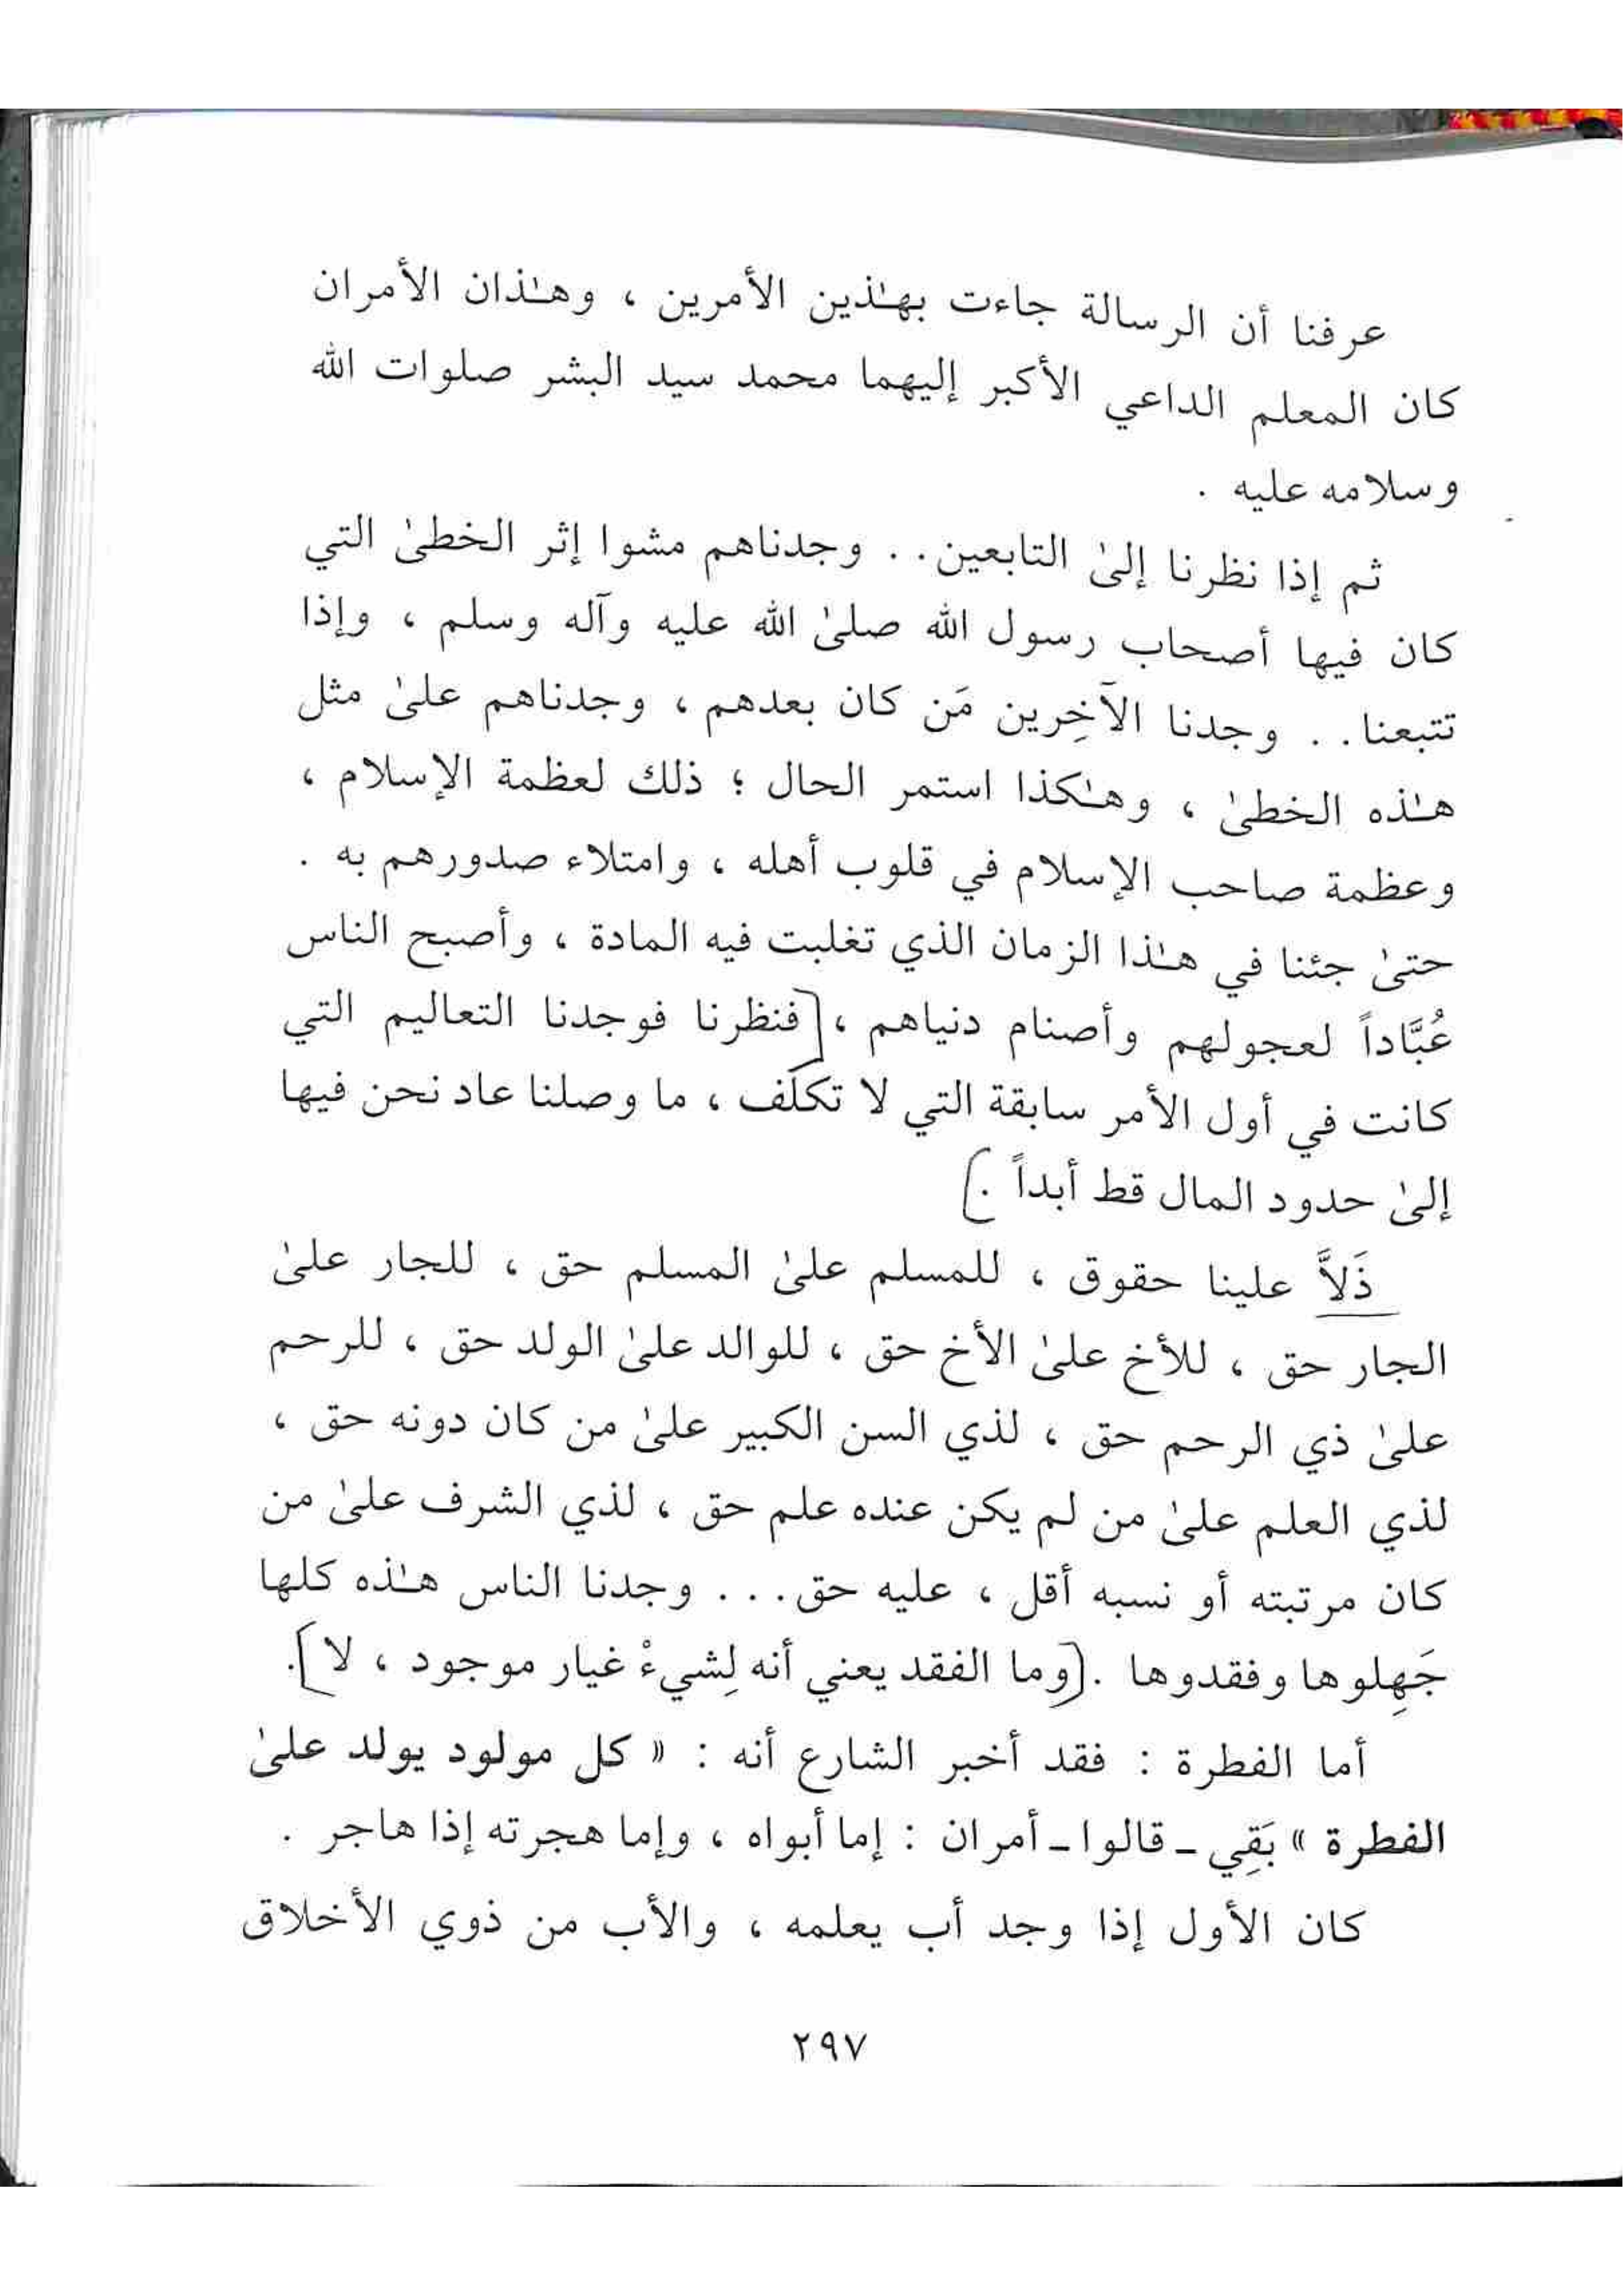 عرفنا أن الرسالة جاءت بهـٰذين الأمرين ، وهـٰذان الأمران
كان المعلم الداعي الأكبر إليهما محمد سيد البشر صلوات الله
وسلامه عليه .
ثم إذا نظرنا إلىٰ التابعين . . وجدناهم مشوا إثر الخطىٰ التي
كان فيها أصحاب رسول الله صلىٰ الله عليه وآله وسلم ، وإذا
تتبعنا . . وجدنا الآخِرين مَن كان بعدهم ، وجدناهم علىٰ مثل
هـٰذه الخطىٰ ، وهـٰكذا استمر الحال ؛ ذلك لعظمة الإسلام ،
وعظمة صاحب الإسلام في قلوب أهله ، وامتلاء صدورهم به .
حتىٰ جئنا في هـٰذا الزمان الذي تغلبت فيه المادة ، وأصبح الناس
عُبَّاداً لعجولهم وأصنام دنياهم ، [فنظرنا فوجدنا التعاليم التي
كانت في أول الأمر سابقة التي لا تكلّف ، ما وصلنا عاد نحن فيها
إلىٰ حدود المال قط أبداً .]
ذَلاَّ علينا حقوق ، للمسلم علىٰ المسلم حق ، للجار علىٰ
الجار حق ، للأخ علىٰ الأخ حق ، للوالد علىٰ الولد حق ، للرحم
علىٰ ذي الرحم حق ، لذي السن الكبير علىٰ من كان دونه حق ،
لذي العلم علىٰ من لم يكن عنده علم حق ، لذي الشرف علىٰ من
كان مرتبته أو نسبه أقل ، عليه حق . . . وجدنا الناس هـٰذه كلها
جَهِلوها وفقدوها . [وما الفقد يعني أنه لِشيءْ غيار موجود ، لا] .
أما الفطرة : فقد أخبر الشارع أنه : « كل مولود يولد علىٰ
الفطرة » بَقِي ـ قالوا ـ أمران : إما أبواه ، وإما هجرته إذا هاجر .
كان الأول إذا وجد أب يعلمه ، والأب من ذوي الأخلاق
٢٩٧